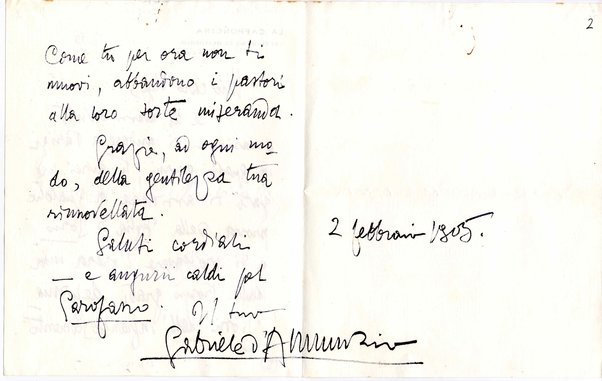 2
Come tu per ora non ti
muovi, abbandono i pastori
alla loro sorte miseranda.
Grazie, ad ogni mo-
do, della gentilezza tua
rinnovellata.
Saluti cordiali
— e augurii caldi pel
Garofano
Il tuo
Gabriele d'Annunzio
2 febbraio 1905.